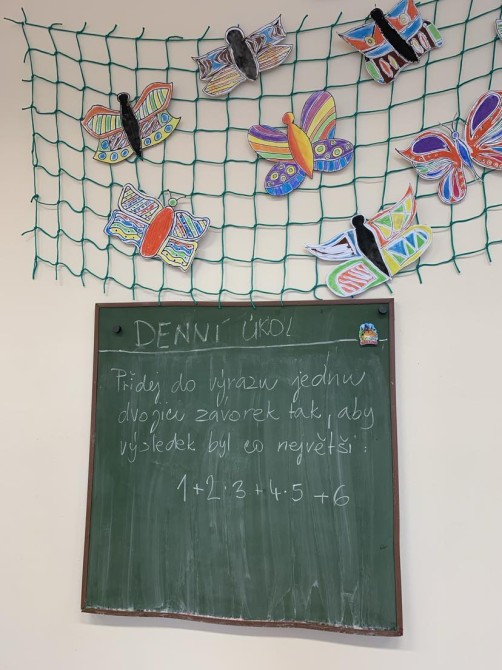 DENNÍ ÚKOL
Přidej do výrazu jednu
dvojici závorek tak, aby
výsledek byl co největší:
1+2·3+4·5+6